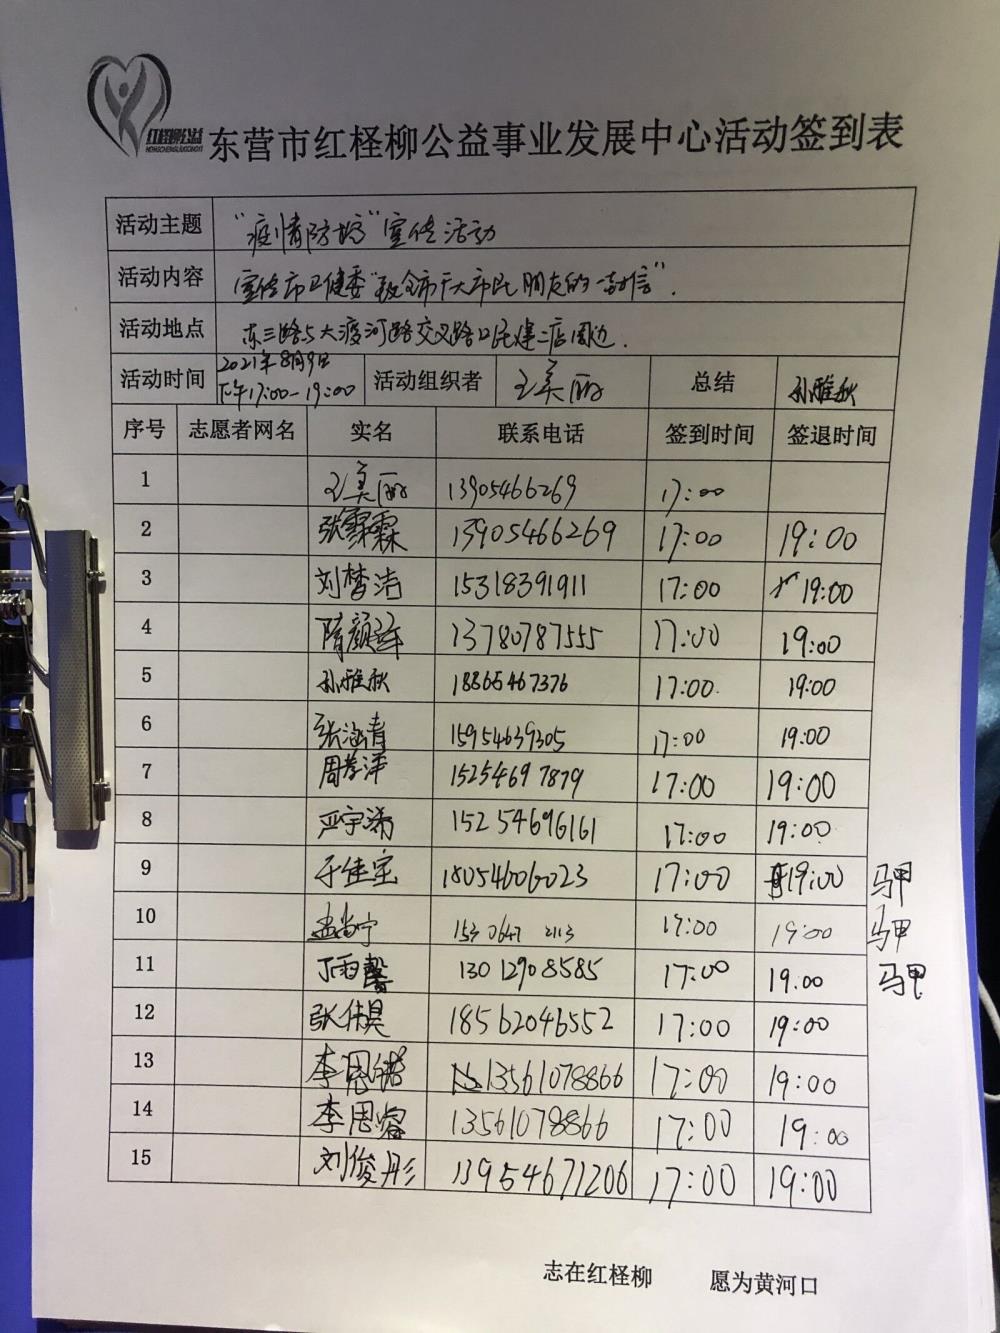 红柽柳公益
东营市红柽柳公益事业发展中心活动签到表
活动主题 “疫情防控”宣传活动
活动内容 宣传市卫健委“致全市广大市民朋友的一封信”.
活动地点 东三路与大渡河路交叉路口民建二店周边.
活动时间 2021年8月9日 下午17:00-19:00 活动组织者 王美丽 总结 孙雅秋
序号 志愿者网名 实名 联系电话 签到时间 签退时间
1 王美丽 13905466269 17:00
2 张霖霖 13905466269 17:00 19:00
3 刘梦洁 15318391911 17:00 19:00
4 隋颜泽 13780787555 17:00 19:00
5 孙雅秋 18865467376 17:00. 19:00
6 张涵清 15954639305 17:00 19:00
7 周孝泽 15254697879 17:00 19:00
8 严宇 15254696161 17:00 19:00
9 于佳宝 18054606023 17:00 19:00 马甲
10 孟尚宁 1530647 2113 17:00 19:00 马甲
11 丁雨馨 13012908585 17:00 19.00 马甲
12 张伟昊 18562046552 17:00 19:00
13 李恩 13561078866 17:00 19:00
14 李思睿 13561078866 17:00 19:00
15 刘俊彤 13954671206 17:00 19:00
志在红柽柳 愿为黄河口